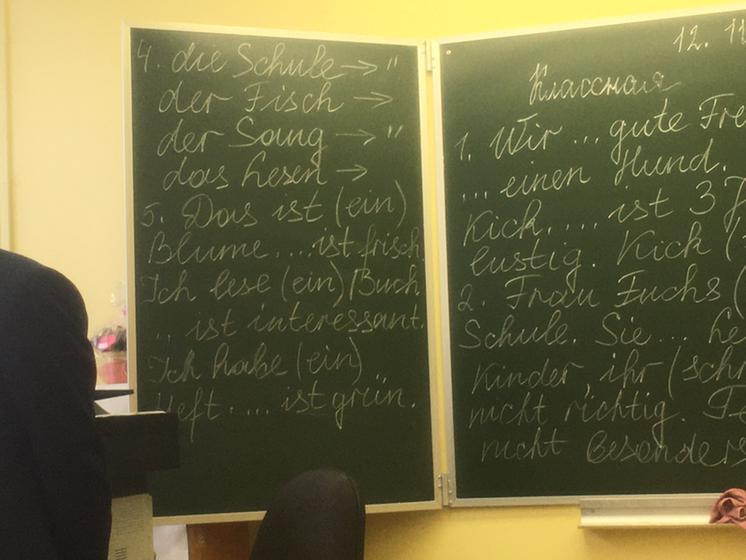 4. die Schule → "
der Fisch →
der Sang → "
das Lesen →
5. Das ist (ein)
Blume. ... ist frisch.
Ich lese (ein) Buch
.. ist interessant.
Ich habe (ein)
Heft. ... ist grün.
12. 11
Классная
1. Wir ... gute Fre
... einen Hund.
Kick. ... ist 3 J
lustig. Kick (
2. Frau Fuchs (
Schule. Sie ... le
Kinder, ihr (schr
nicht richtig.
nicht besonders